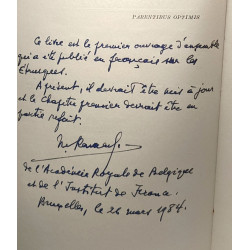 PARENTIBUS OPTIMIS
Ce livre est le premier ouvrage d'ensemble
qui a été publié en français sur les
Etrusques.
A présent, il devrait être mis à jour
et le chapitre premier devrait être en
partie refait.
de l'Académie Royale de Belgique
et de l'Institut de France.
Bruxelles, le 26 mars 1984.